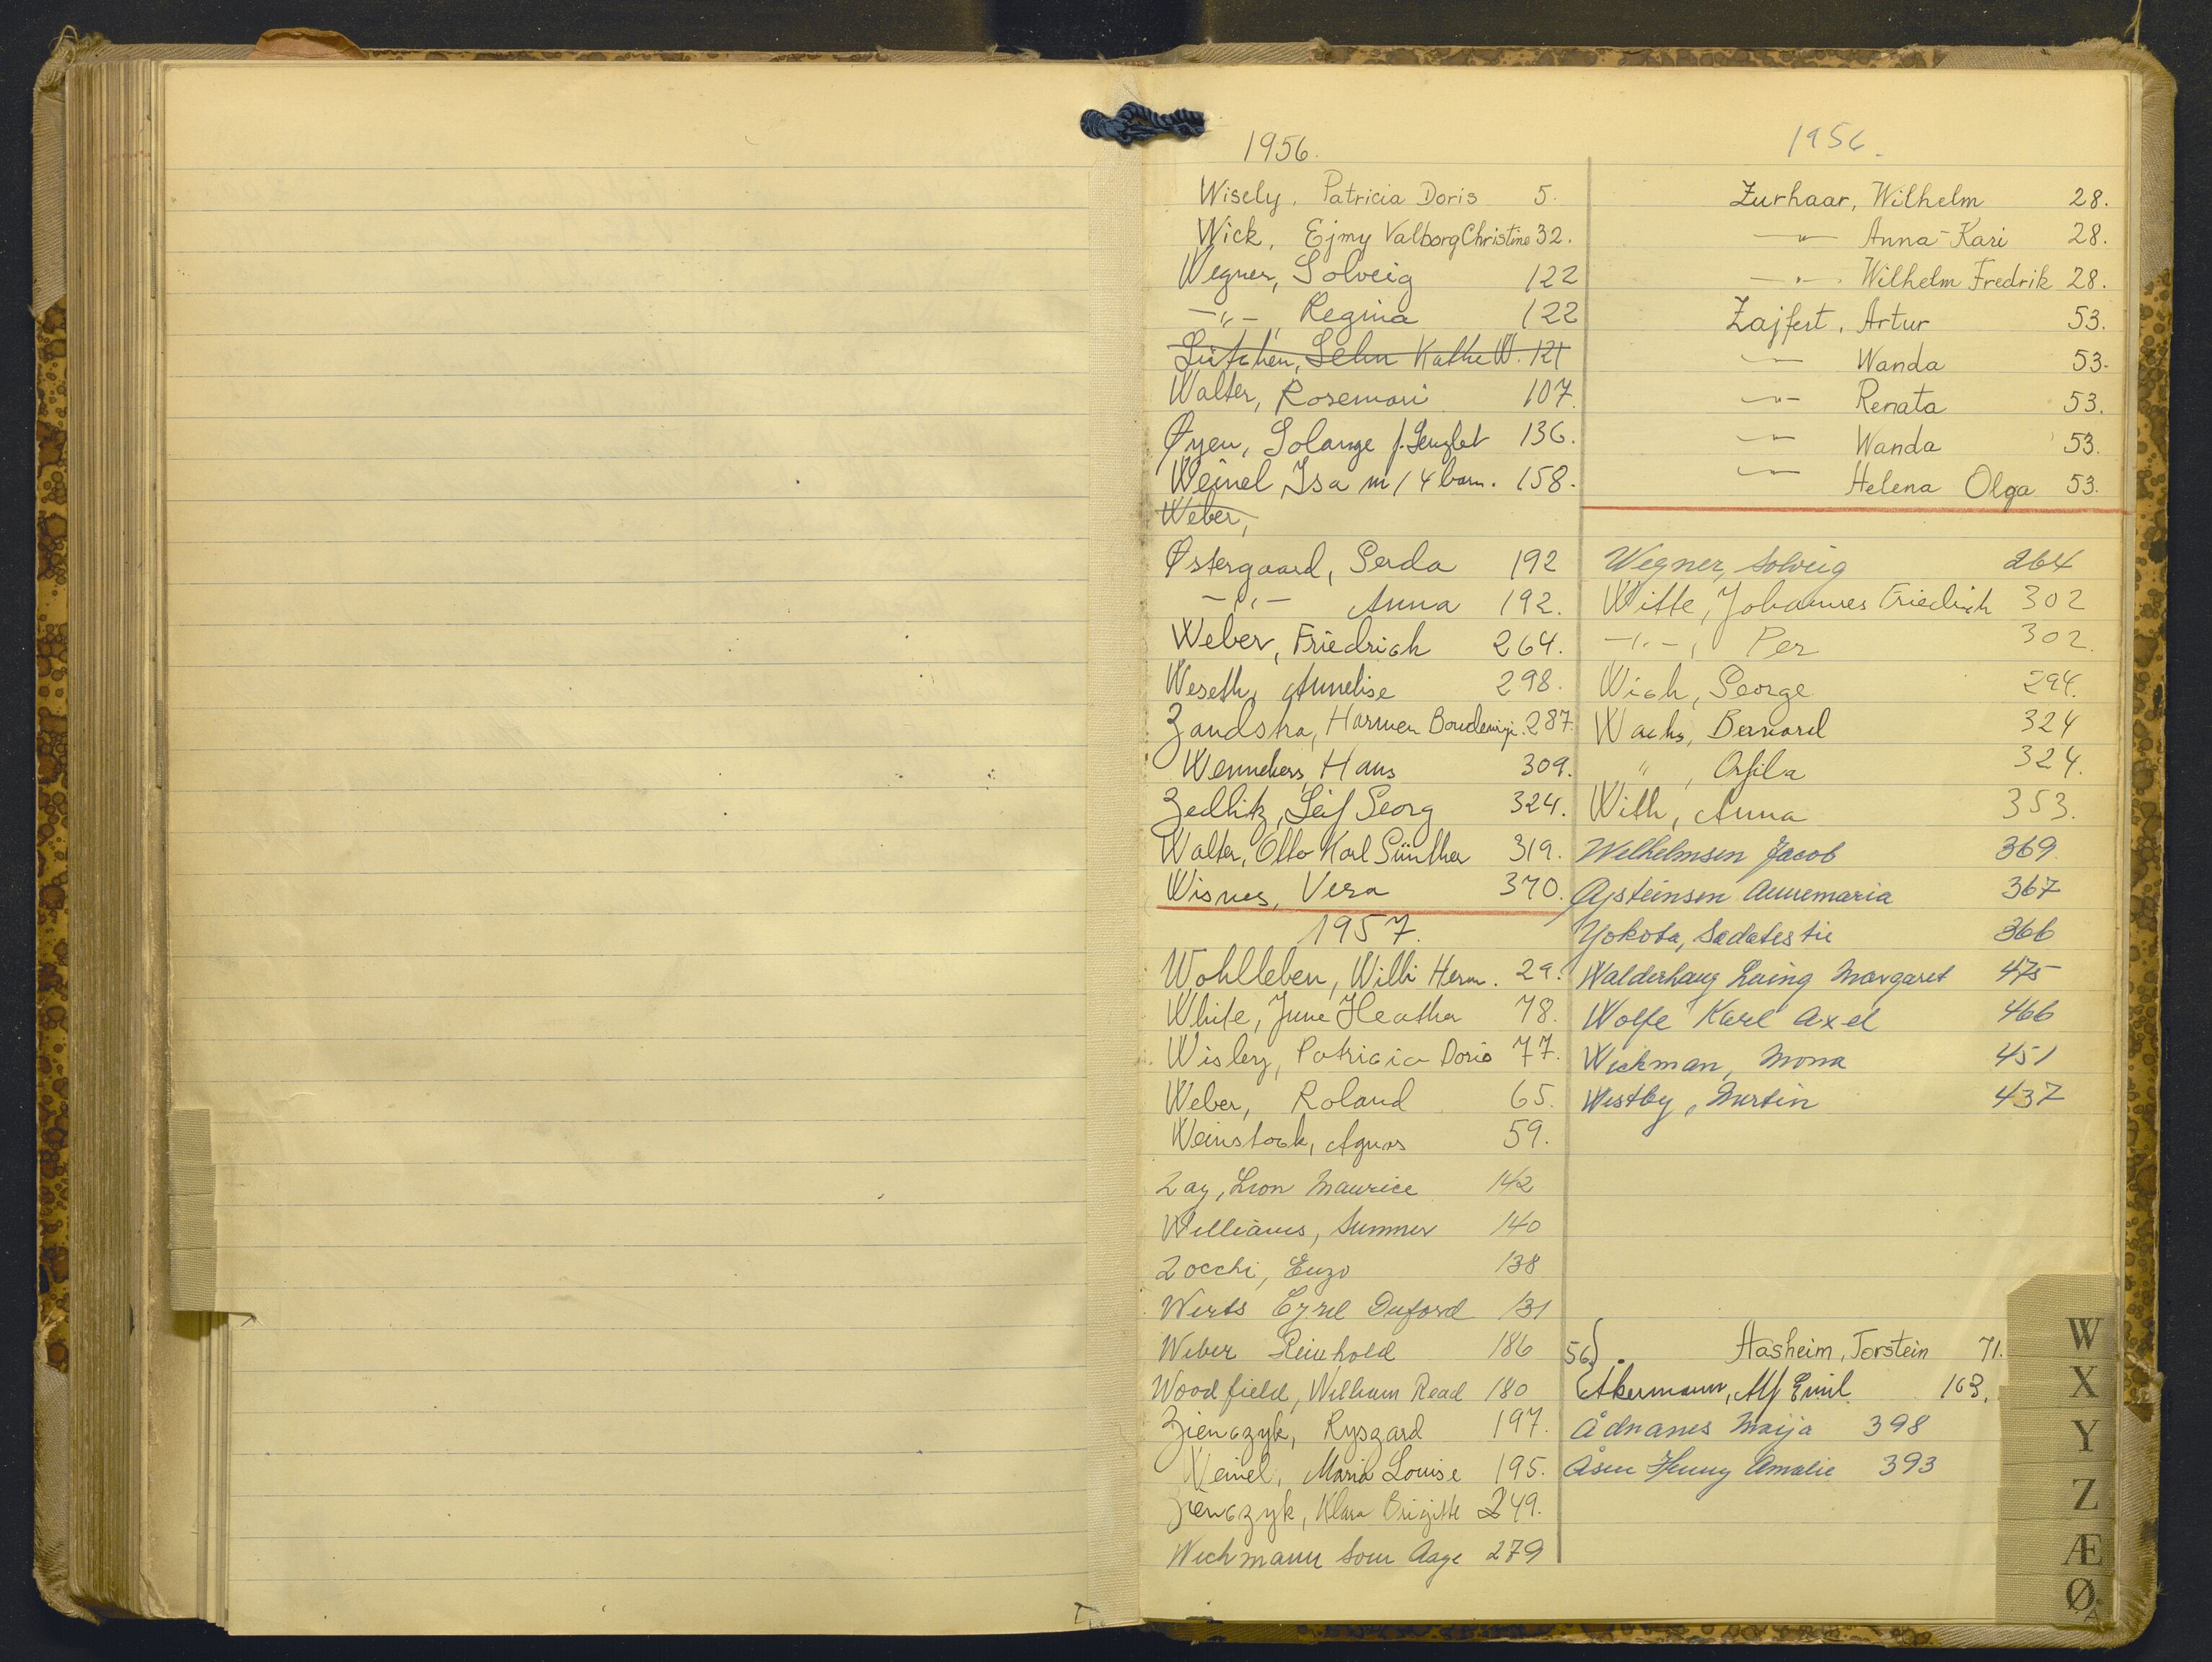 1956.
Wisely, Patricia Doris 5.
Wick, Ejmy Valborg Christine 32.
Wegner, Solveig 122
-"- Regina 122
Kathe W. 121
Walter, Rosemari 107.
Øyen, Solange f. Lenglet 136.
Weinel Isa m/ 4 barn. 158.
Weber,
Østergaard, Gerda 192
-"- Anna 192.
Weber, Friedrich 264.
Weseth, Annelise 298.
Zandstra, Harmen 287.
Wennekers, Hans 309.
Zedlitz, Leif Georg 324.
Walter, Otto Karl Günther 319.
Wisnes, Vera 370.
1957.
Wohlleben, Willi Herm. 29.
White, June Heather 78.
Wisley, Patricia Doris 77.
Weber, Roland 65.
Weinstock, Agnes 59.
Zay, Leon Maurice 142
Williams, Sumner 140
Zocchi, Enzo 138
Werts Duford 131
Weber Reinhold 186
Woodfield, William Read 180
Zienczyk, Ryszard 197.
Weinel, Maria Louise 195.
Zienczyk, Klara Brigitte 249.
Wichmann Aage 279
1956.
Zurhaar, Wilhelm 28.
-"- Anna-Kari 28.
-"- Wilhelm Fredrik 28.
Zajfert, Artur 53.
-"- Wanda 53.
-"- Renata 53.
-"- Wanda 53.
-"- Helena Olga 53.
Wegner, Solveig 264
Witte, Johannes Friedrich 302
-"-, Per 302.
Wich, George 294.
Wachs, Bernard 324
" , 324.
With, Anna 353.
Wilhelmsen Jacob 369
Øysteinsen Annemaria 367
Yokota, 366
Walderhaug Laing Margaret 475
Wolfe Karl Axel 466
Wickman, Mona 451
Westby, Martin 437
56) Hasheim, Torstein 71.
Akermann, Alf Emil 163.
Ådnanes Maija 398
Åsen Henny Amalie 393
W
X
Y
Z
Æ
Ø
Å